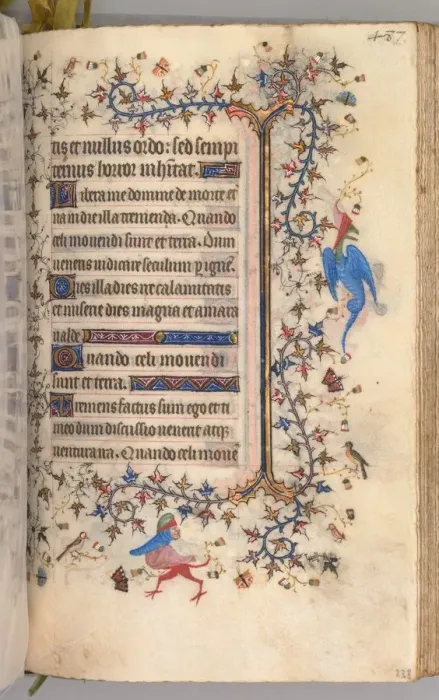 tis et nullus ordo: sed sempi
ternus horror inhitat.
Libera me domine de morte et
na in die illa tremenda. Quando
celi mouendi sunt et terra. Dum
ueneris iudicare seculum p ignē.
Dies illa dies ire calamitatis
et miserie dies magna et amara
ualde
Quando celi mouendi
sunt et terra.
Tremens factus sum ego et ti
meo dum discussio uenerit atq;
uentura ira. Quando celi mouē